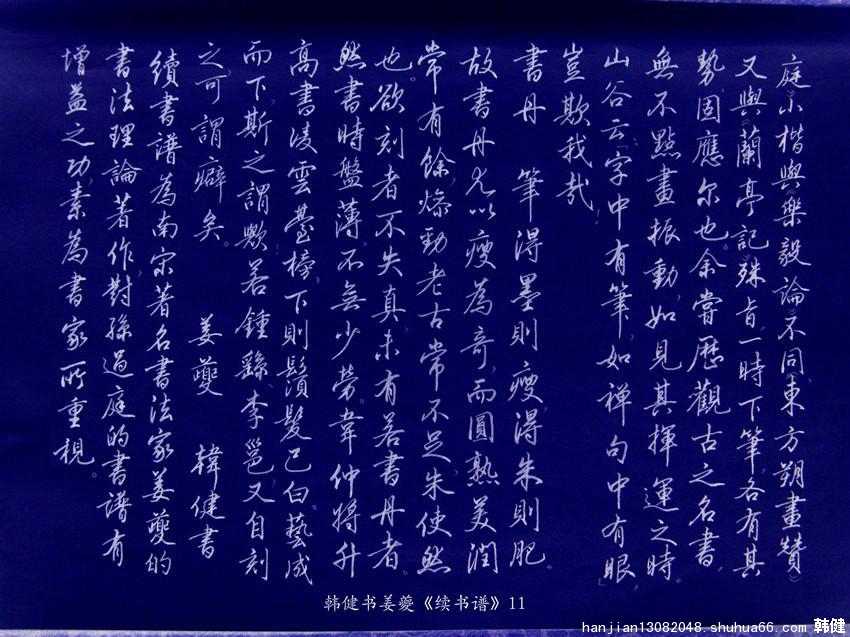 庭小楷與《樂毅論》不同,東方朔畫贊
又與《蘭亭記》殊旨,一時下筆,各有其
勢,固應尔也。余嘗歷觀古之名書,
無不點畫振動,如見其揮運之時。
山谷云:「字中有筆,如禅句中有眼」,
豈欺我哉。
書丹 筆得墨則瘦,得朱則肥。
故書丹尤以瘦為奇,而圓熟美潤
常有餘,燥勁老古常不足,朱使然
也。欲刻者不失真,未有若書丹者。
然書時盤薄,不無少勞。韋仲將升
高書凌雲臺榜,下則鬚髮已白。藝成
而下,斯之謂歟。若鍾繇、李邕又自刻
之,可謂癖矣。 姜夔 韓健書
續書譜為南宋著名書法家姜夔的
書法理論著作,對孫過庭的書譜有
增益之功,素為書家所重視。
韩健书姜夔《续书谱》11
hanjian13082048.shuhua66.com 韩健